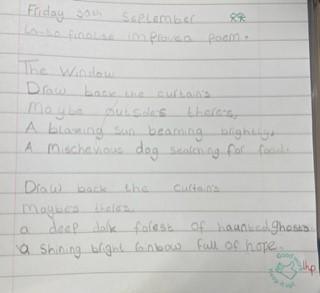 Friday 30th September
Lo-to finalise improved poem.
The Window
Draw back the curtain's
Maybe outside's there's,
A blazing sun beaming brightly,
A mischevious dog searching for food.
Draw back the curtain's
Maybes theres
a deep dark forest of haunted ghosts
a shining bright rainbow full of hope.